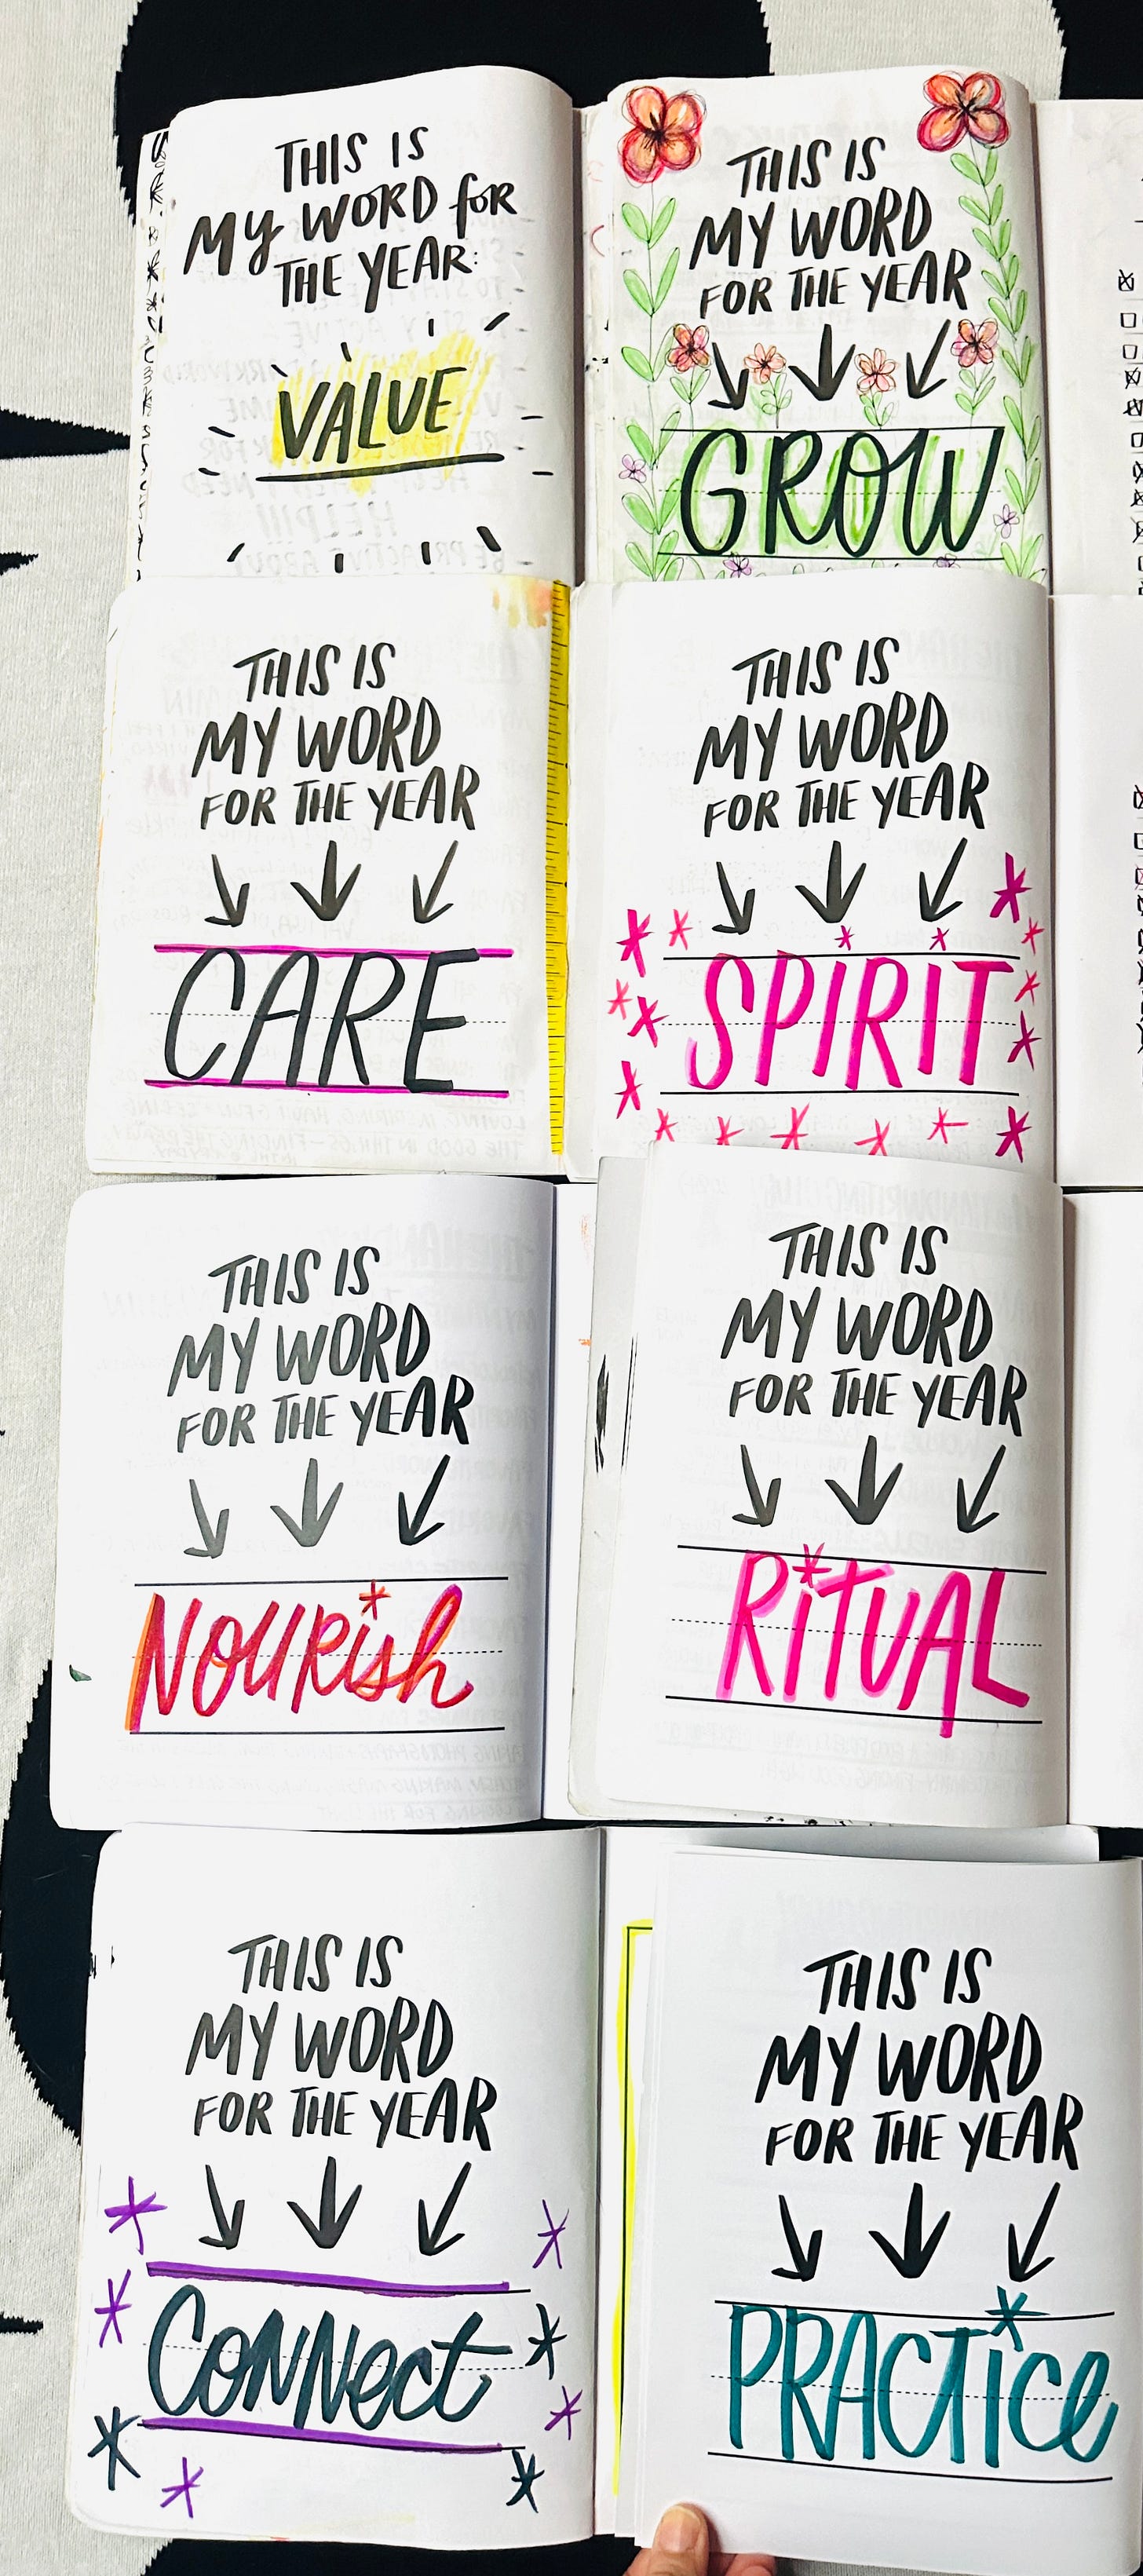 THIS IS
My WORD for
THE YEAR:
VALUE
THIS IS
MY WORD
FOR THE YEAR
GROW
THIS IS
MY WORD
FOR THE YEAR
CARE
THIS IS
MY WORD
FOR THE YEAR
SPIRIT
THIS IS
MY WORD
FOR THE YEAR
NOURish
THIS IS
MY WORD
FOR THE YEAR
RiTUAL
THIS IS
MY WORD
FOR THE YEAR
CoNNect
THIS IS
MY WORD
FOR THE YEAR
PRACTice